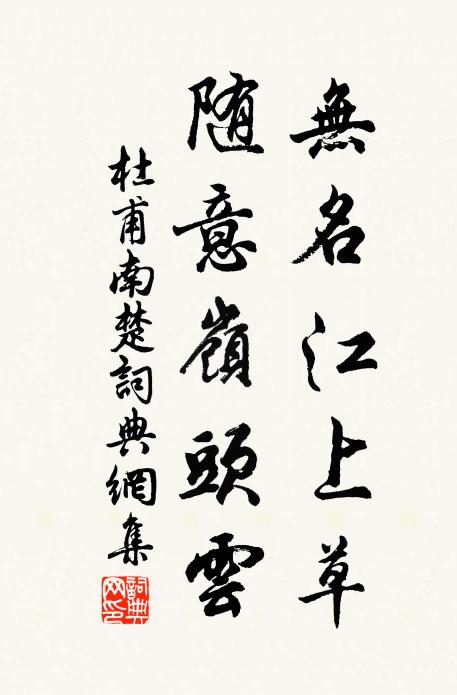 無名江上草
随意嶺頭雲
杜甫南楚詞典網集
詞典网印